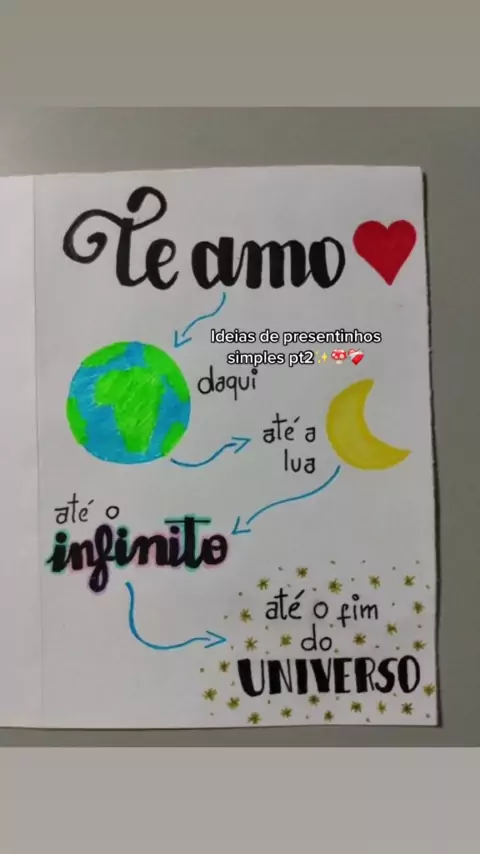 Te amo
Ideias de presentinhos
simples pt2✨🍄❤️‍🩹
daqui
até a
lua
até o
infinito
até o fim
do
UNIVERSO